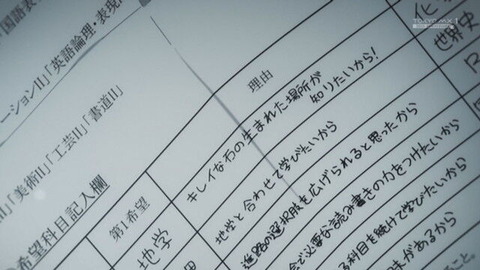 TOKYO MX 1
国語表
ーションII」「英語論理・表現
II」「美術II」「工芸II」「書道II」
希望科目記入欄
理由
第1希望
地学
キレイな石の生まれた場所が
知りたいから!
地学と合わせて学びたいから
進路の選択肢を広げられると思ったから
で必要な読み書きの力をつけたいから
科目を続けて学びたいから
があるから
化
世界史